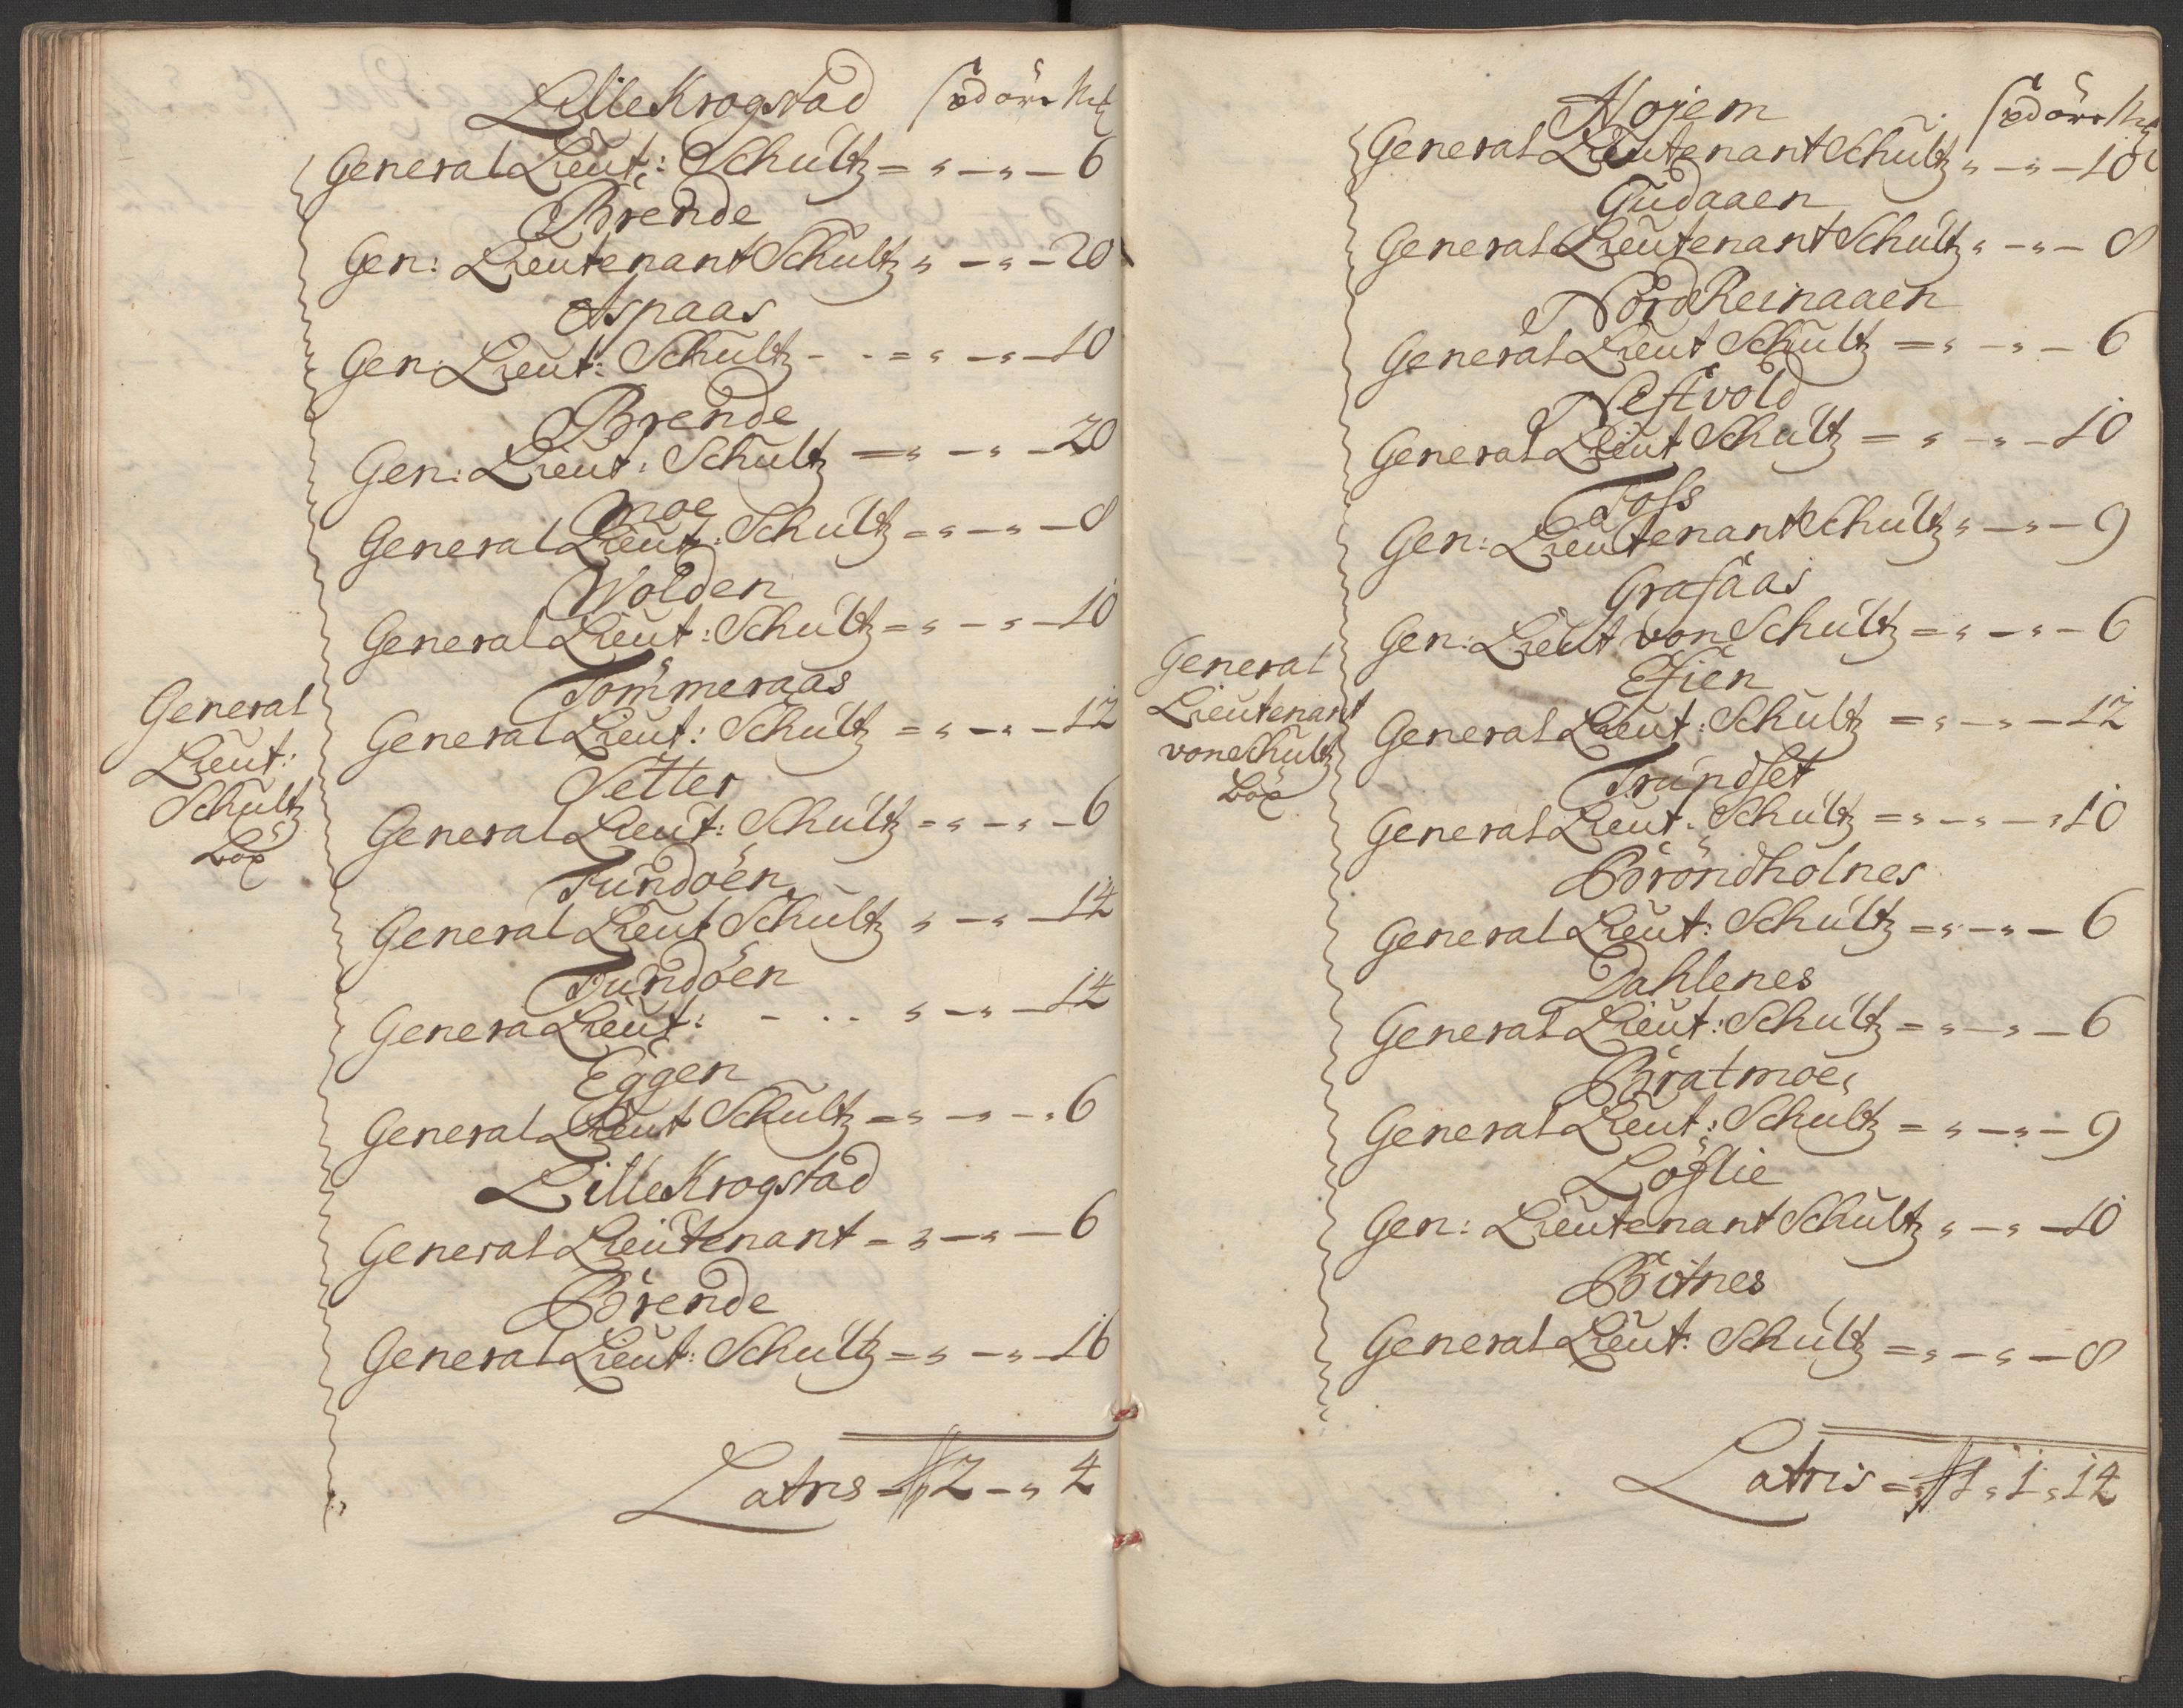 LilleKrogstad
General Lieut: Schultz = " - " - 6
Brende
Gen: Lieutenant Schultz " - " - 20
Aspaas
Gen: Lieut: Schultz - - = " - " - 10
Brende
Gen: Lieut: Schultz = " - " - 20
Moe
General Lieut: Schultz = " - " - 8
Wolden
General Lieut: Schultz = " - " - 10
Tömmeraas
General Lieut: Schultz = " - " - 12
Setter
General Lieut: Schultz = " - " - 6
Fundöen
General Lieut Schultz " - " - 14
Fundöen
Genera Lieut: - - - " - " - 14
Eggen
General Lieut Schultz = " - " - 6
LilleKrogstad
General Lieutenant = " - " - 6
Brende
General Lieut: Schultz = " - " - 16
General
Lieut:
Schultz
Latris = 2 - " 4
Hojem
General Lieutenant Schultz " - " - 10
Gudaaen
General Lieutenant Schultz " - " - 8
Nord Reinaaen
General Lieut Schultz = " - " - 6
Nestvold
General Lieut Schultz = " - " - 10
Foss
Gen: Lieutenant Schultz " - " - 9
Grafaas
Gen: Lieut von Schultz = " - " - 6
General Lieut: Schultz = " - " - 12
General Lieut: Schultz = " - " - 10
Bröndholnes
General Lieut: Schultz = " - " - 6
Dahlenes
General Lieut: Schultz = " - " - 6
Bratmoe
General Lieut: Schultz = " - " - 9
Löflie
Gen: Lieutenant Schultz " - " - 10
Bitnes
General Lieut: Schultz = " - " - 8
General
Lieutenant
von Schultz
Latris = 1 " 1 " 14